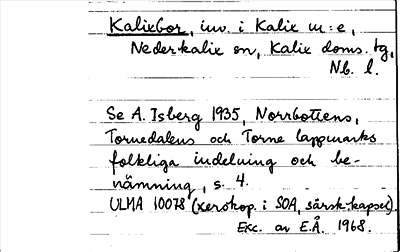 Kalixbor, inv. i Kalix m:e,
Nederkalix sn, Kalix doms. tg,
Nb. l.
Se A. Isberg 1935, Norrbottens,
Tornedalens och Torne lappmarks
folkliga indelning och be-
nämning, s. 4.
ULMA 10078 (xerokop. i SOA, särsk. kapsel).
Exc. av E.Å. 1968.